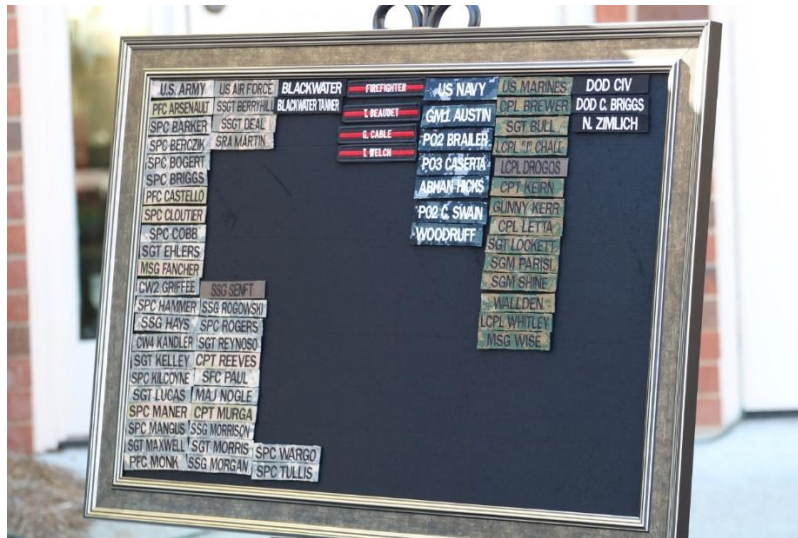 U.S. ARMY
PFC ARSENAULT
SPC BARKER
SPC BERCZIK
SPC BOGERT
SPC BRIGGS
PFC CASTELLO
SPC CLOUTIER
SPC COBB
SGT EHLERS
MSG FANCHER
CW2 GRIFFEE
SPC HAMMER
SSG HAYS
CW4 KANDLER
SGT KELLEY
SPC KILCOYNE
SGT LUCAS
SPC MANER
SPC MANGUS
SGT MAXWELL
PFC MONK
SSG SENFT
SSG ROGOWSKI
SPC ROGERS
SGT REYNOSO
CPT REEVES
SFC PAUL
MAJ NOGLE
CPT MURGA
SSG MORRISON
SGT MORRIS
SSG MORGAN
SPC WARGO
SPC TULLIS
US AIR FORCE
SSGT BERRYHILL
SSGT DEAL
SRA MARTIN
BLACKWATER
BLACKWATER TANNER
FIREFIGHTER
T. BEAUDET
G. CABLE
T. WELCH
US NAVY
GM1 AUSTIN
PO2 BRAILER
PO3 CASERTA
ABHAN HICKS
PO2 C. SWAIN
WOODRUFF
US MARINES
CPL BREWER
SGT BULL
LCPL CHALL
LCPL DROGOS
CPT KEIRN
GUNNY KERR
CPL LETTA
SGT LOCKETT
SGM PARISI
SGM SHINE
WALLDEN
LCPL WHITLEY
MSG WISE
DOD CIV
DOD C. BRIGGS
N. ZIMLICH